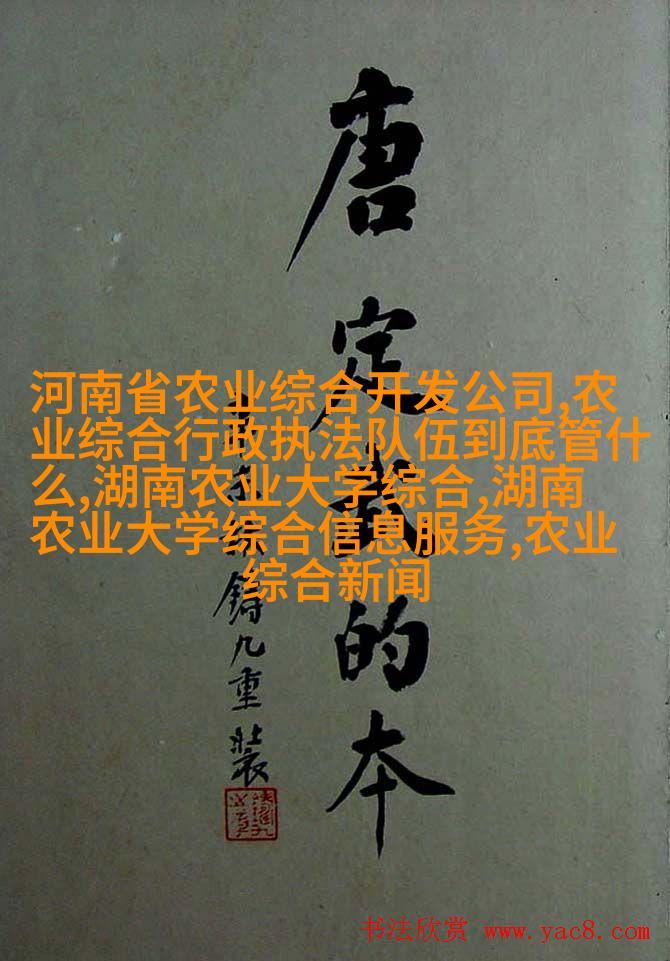 唐定武的本
鑄九重裝
河南省农业综合开发公司,农
业综合行政执法队伍到底管什
么,湖南农业大学综合,湖南
农业大学综合信息服务,农业
综合新闻
书法欣赏 www.yac8.com